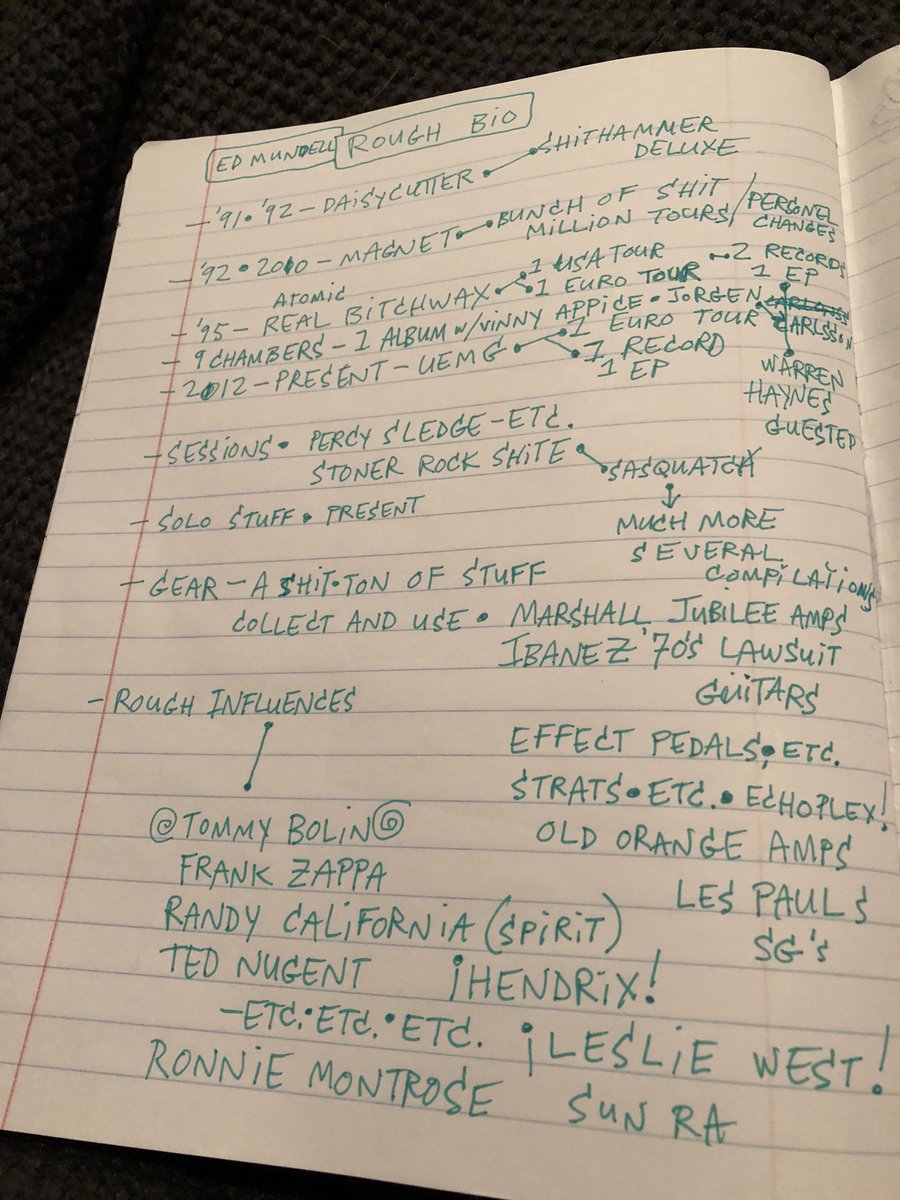 ED MUNDELL ROUGH BIO
- '91 • '92 - DAISYCUTTER • SHITHAMMER
DELUXE
- '92 • 2010 - MAGNET • BUNCH OF SHIT
MILLION TOURS / PERSONEL
CHANGES
- '95 - ATOMIC REAL BITCHWAX • 1 USA TOUR
• 1 EURO TOUR
• 2 RECORDS
1 EP
- 9 CHAMBERS - 1 ALBUM w/ VINNY APPICE • JORGEN CARLSSON
CARLSSON
WARREN
HAYNES
GUESTED
- 2012 - PRESENT - UEMG • 1 EURO TOUR
• 1 RECORD
1 EP
- SESSIONS • PERCY SLEDGE - ETC.
STONER ROCK SHITE • SASQUATCH
MUCH MORE
SEVERAL
COMPILATIONS
- SOLO STUFF • PRESENT
- GEAR - A SHIT•TON OF STUFF
COLLECT AND USE • MARSHALL JUBILEE AMPS
IBANEZ '70'S LAWSUIT
GUITARS
EFFECT PEDALS, ETC.
STRATS • ETC. • ECHOPLEX!
OLD ORANGE AMPS
LES PAULS
SG's
- ROUGH INFLUENCES
@TOMMY BOLIN@
FRANK ZAPPA
RANDY CALIFORNIA (SPIRIT)
TED NUGENT ¡HENDRIX!
- ETC. • ETC. • ETC. ¡LESLIE WEST!
RONNIE MONTROSE SUN RA